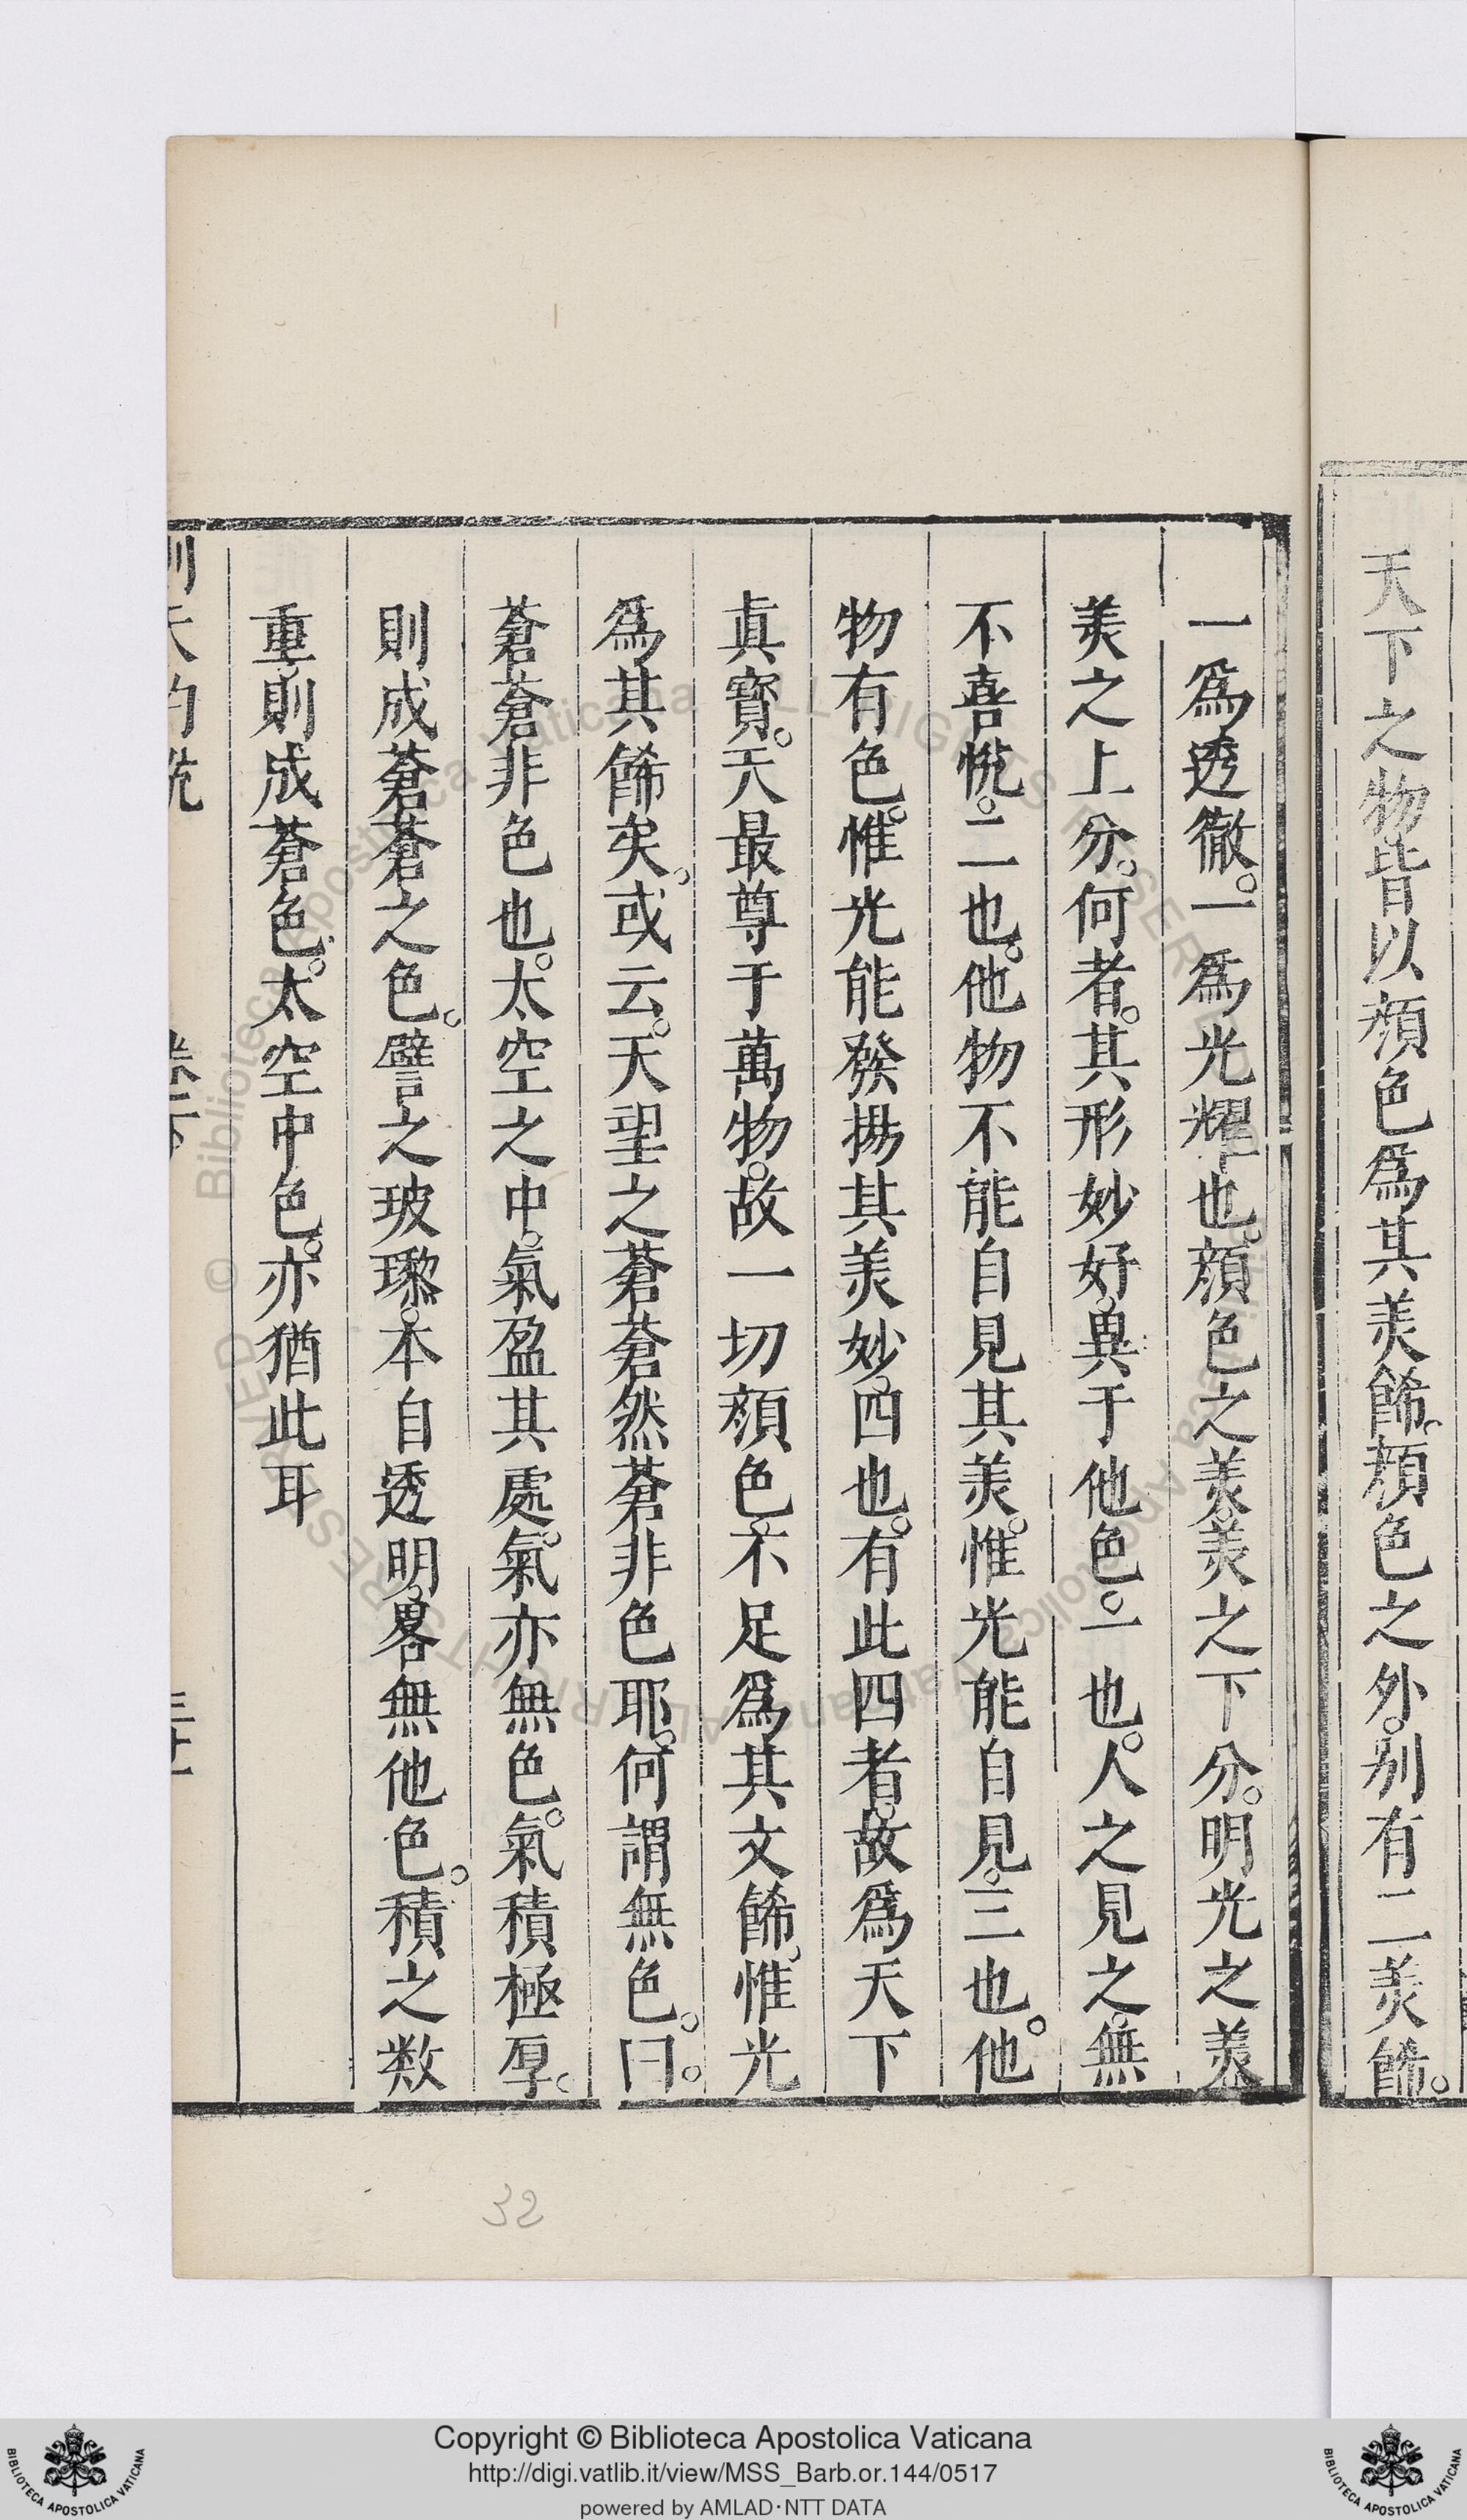 天下之物皆以顏色爲其美餙。顏色之外。別有二美餙。
一爲透徹。一爲光耀也。顏色之美。美之下分。明光之美
美之上分。何者。其形妙好。異于他色。一也。人之見之。無
不喜悅。二也。他物不能自見其美。惟光能自見。三也。他
物有色。惟光能發揚其美妙。四也。有此四者。故爲天下
眞寶。天最尊于萬物。故一切顏色。不足爲其文餙。惟光
爲其餙矣。或云。天望之蒼蒼然。蒼非色耶。何謂無色。曰。
蒼蒼非色也。太空之中。氣盈其處。氣亦無色。氣積極厚。
則成蒼蒼之色。譬之玻瓈。本自透明。畧無他色。積之數
重。則成蒼色。太空中色。亦猶此耳
32
© Biblioteca Apostolica Vaticana ALL RIGHTS RESERVED
Copyright © Biblioteca Apostolica Vaticana
http://digi.vatlib.it/view/MSS_Barb.or.144/0517
powered by AMLAD·NTT DATA
BIBLIOTECA APOSTOLICA VATICANA
BIBLIOTECA APOSTOLICA VATICANA